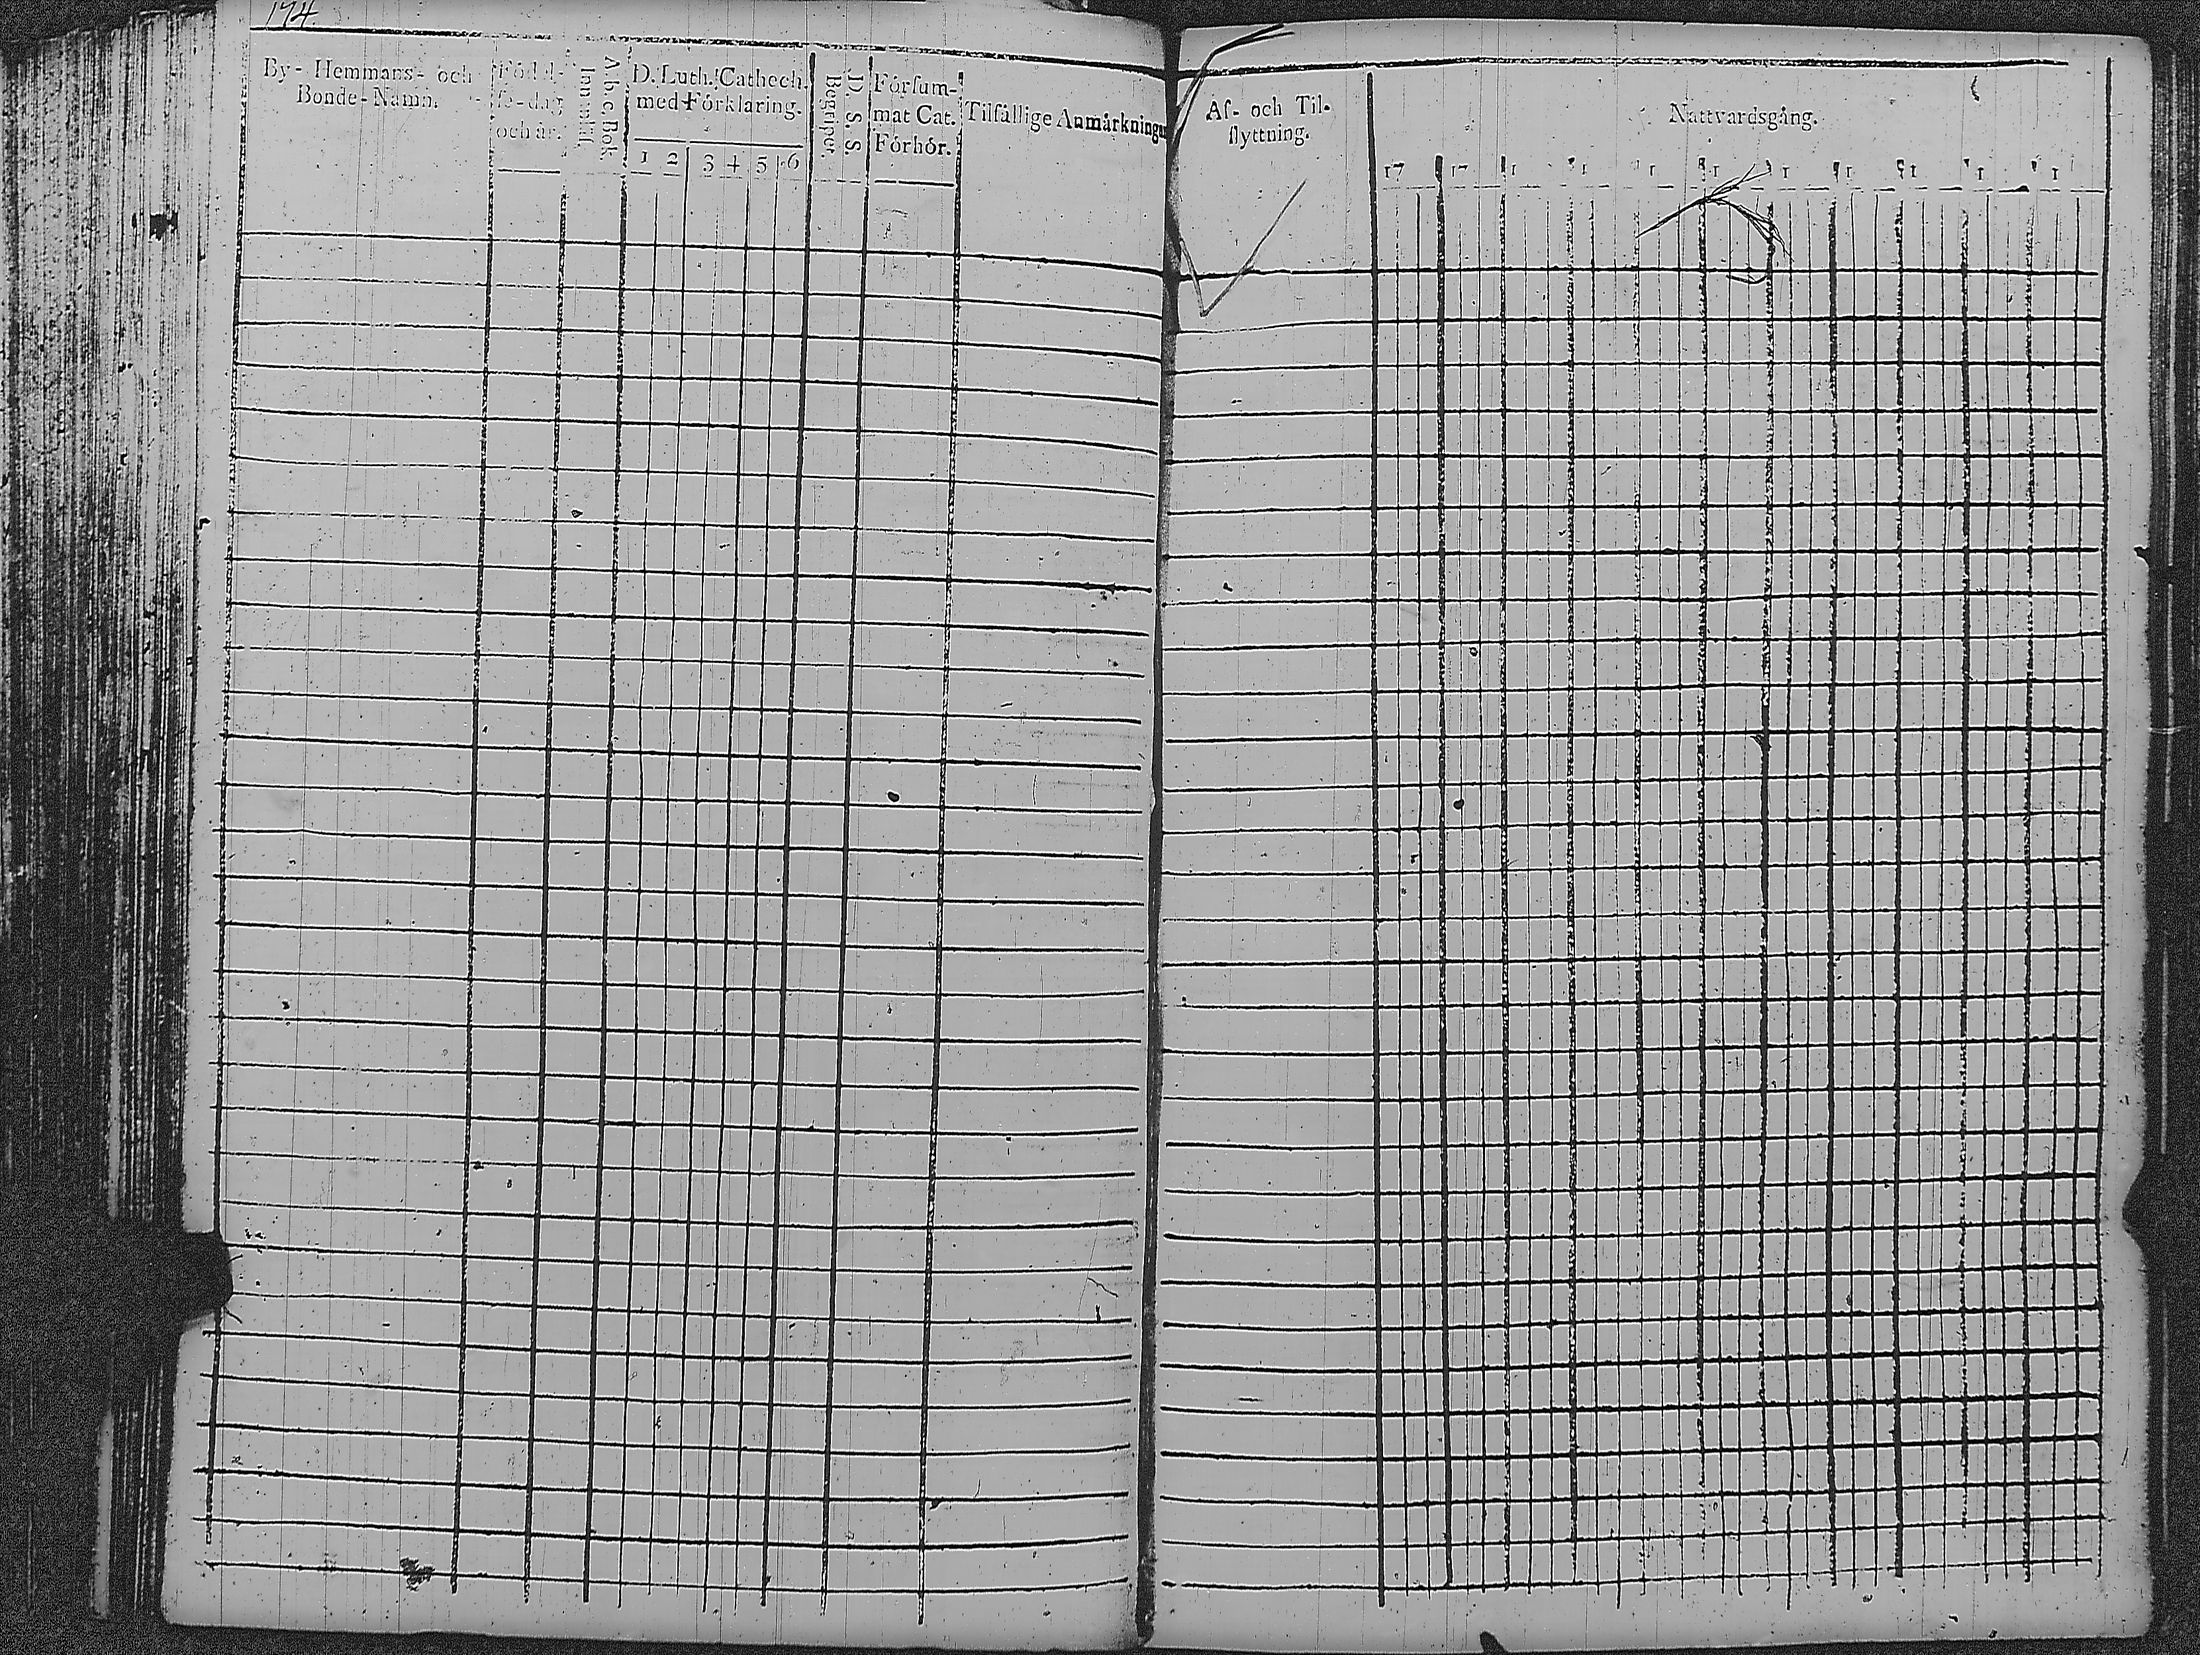 174.
By- Hemmans- och
Bonde-Namn.
Födel-
se-dag
och år.
A. b. c. Bok
Innantil.
D. Luth. Cathech.
med Förklaring.
1 2 3 4 5 6
D. S. S.
Begriper.
Försum-
mat Cat.
Förhör.
Tilfällige Anmärkningar
Af- och Til-
flyttning.
Nattvardsgång.
17 17 1 1 1 1 1 1 1 1 1